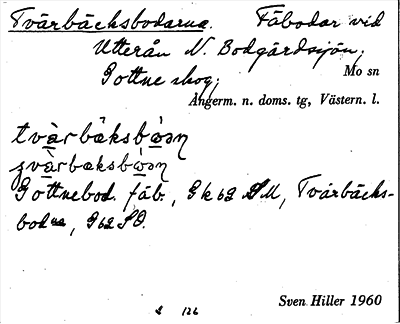 Tvärbäcksbodarna. Fäbodar vid
Utterån N. Bodgårdssjön,
Gottne skog;
Mo sn
Ångerm. n. doms. tg, Västern. l.
Gottnebod. fäb., Gk 62 SM, Tvärbäcks-
bodna, G 62 SO.
Sven Hiller 1960
126